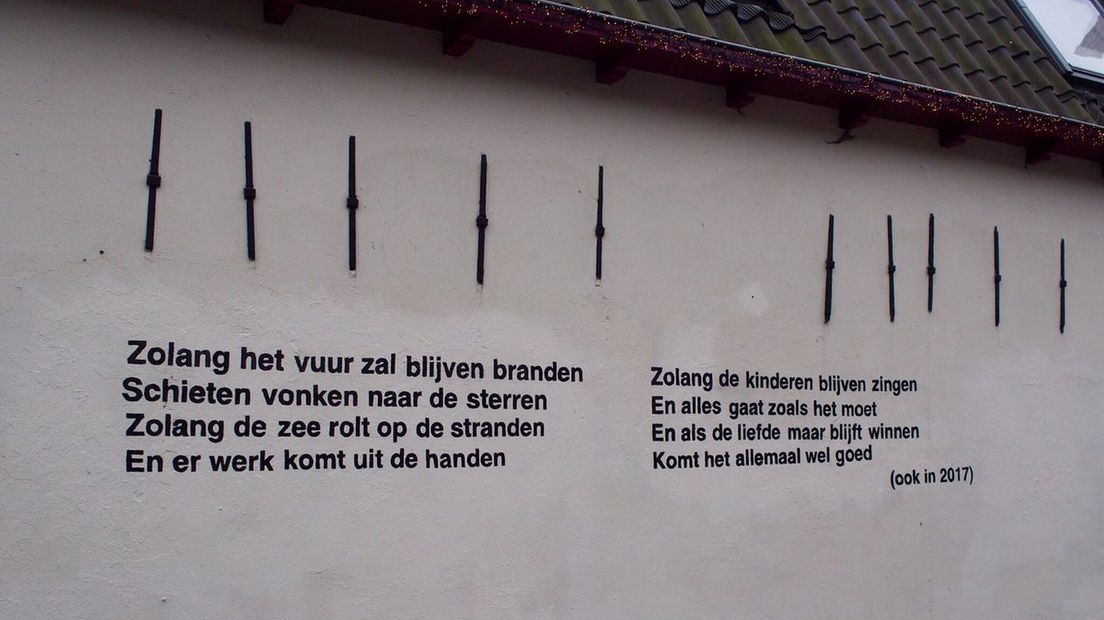 Zolang het vuur zal blijven branden
Schieten vonken naar de sterren
Zolang de zee rolt op de stranden
En er werk komt uit de handen
Zolang de kinderen blijven zingen
En alles gaat zoals het moet
En als de liefde maar blijft winnen
Komt het allemaal wel goed
(ook in 2017)